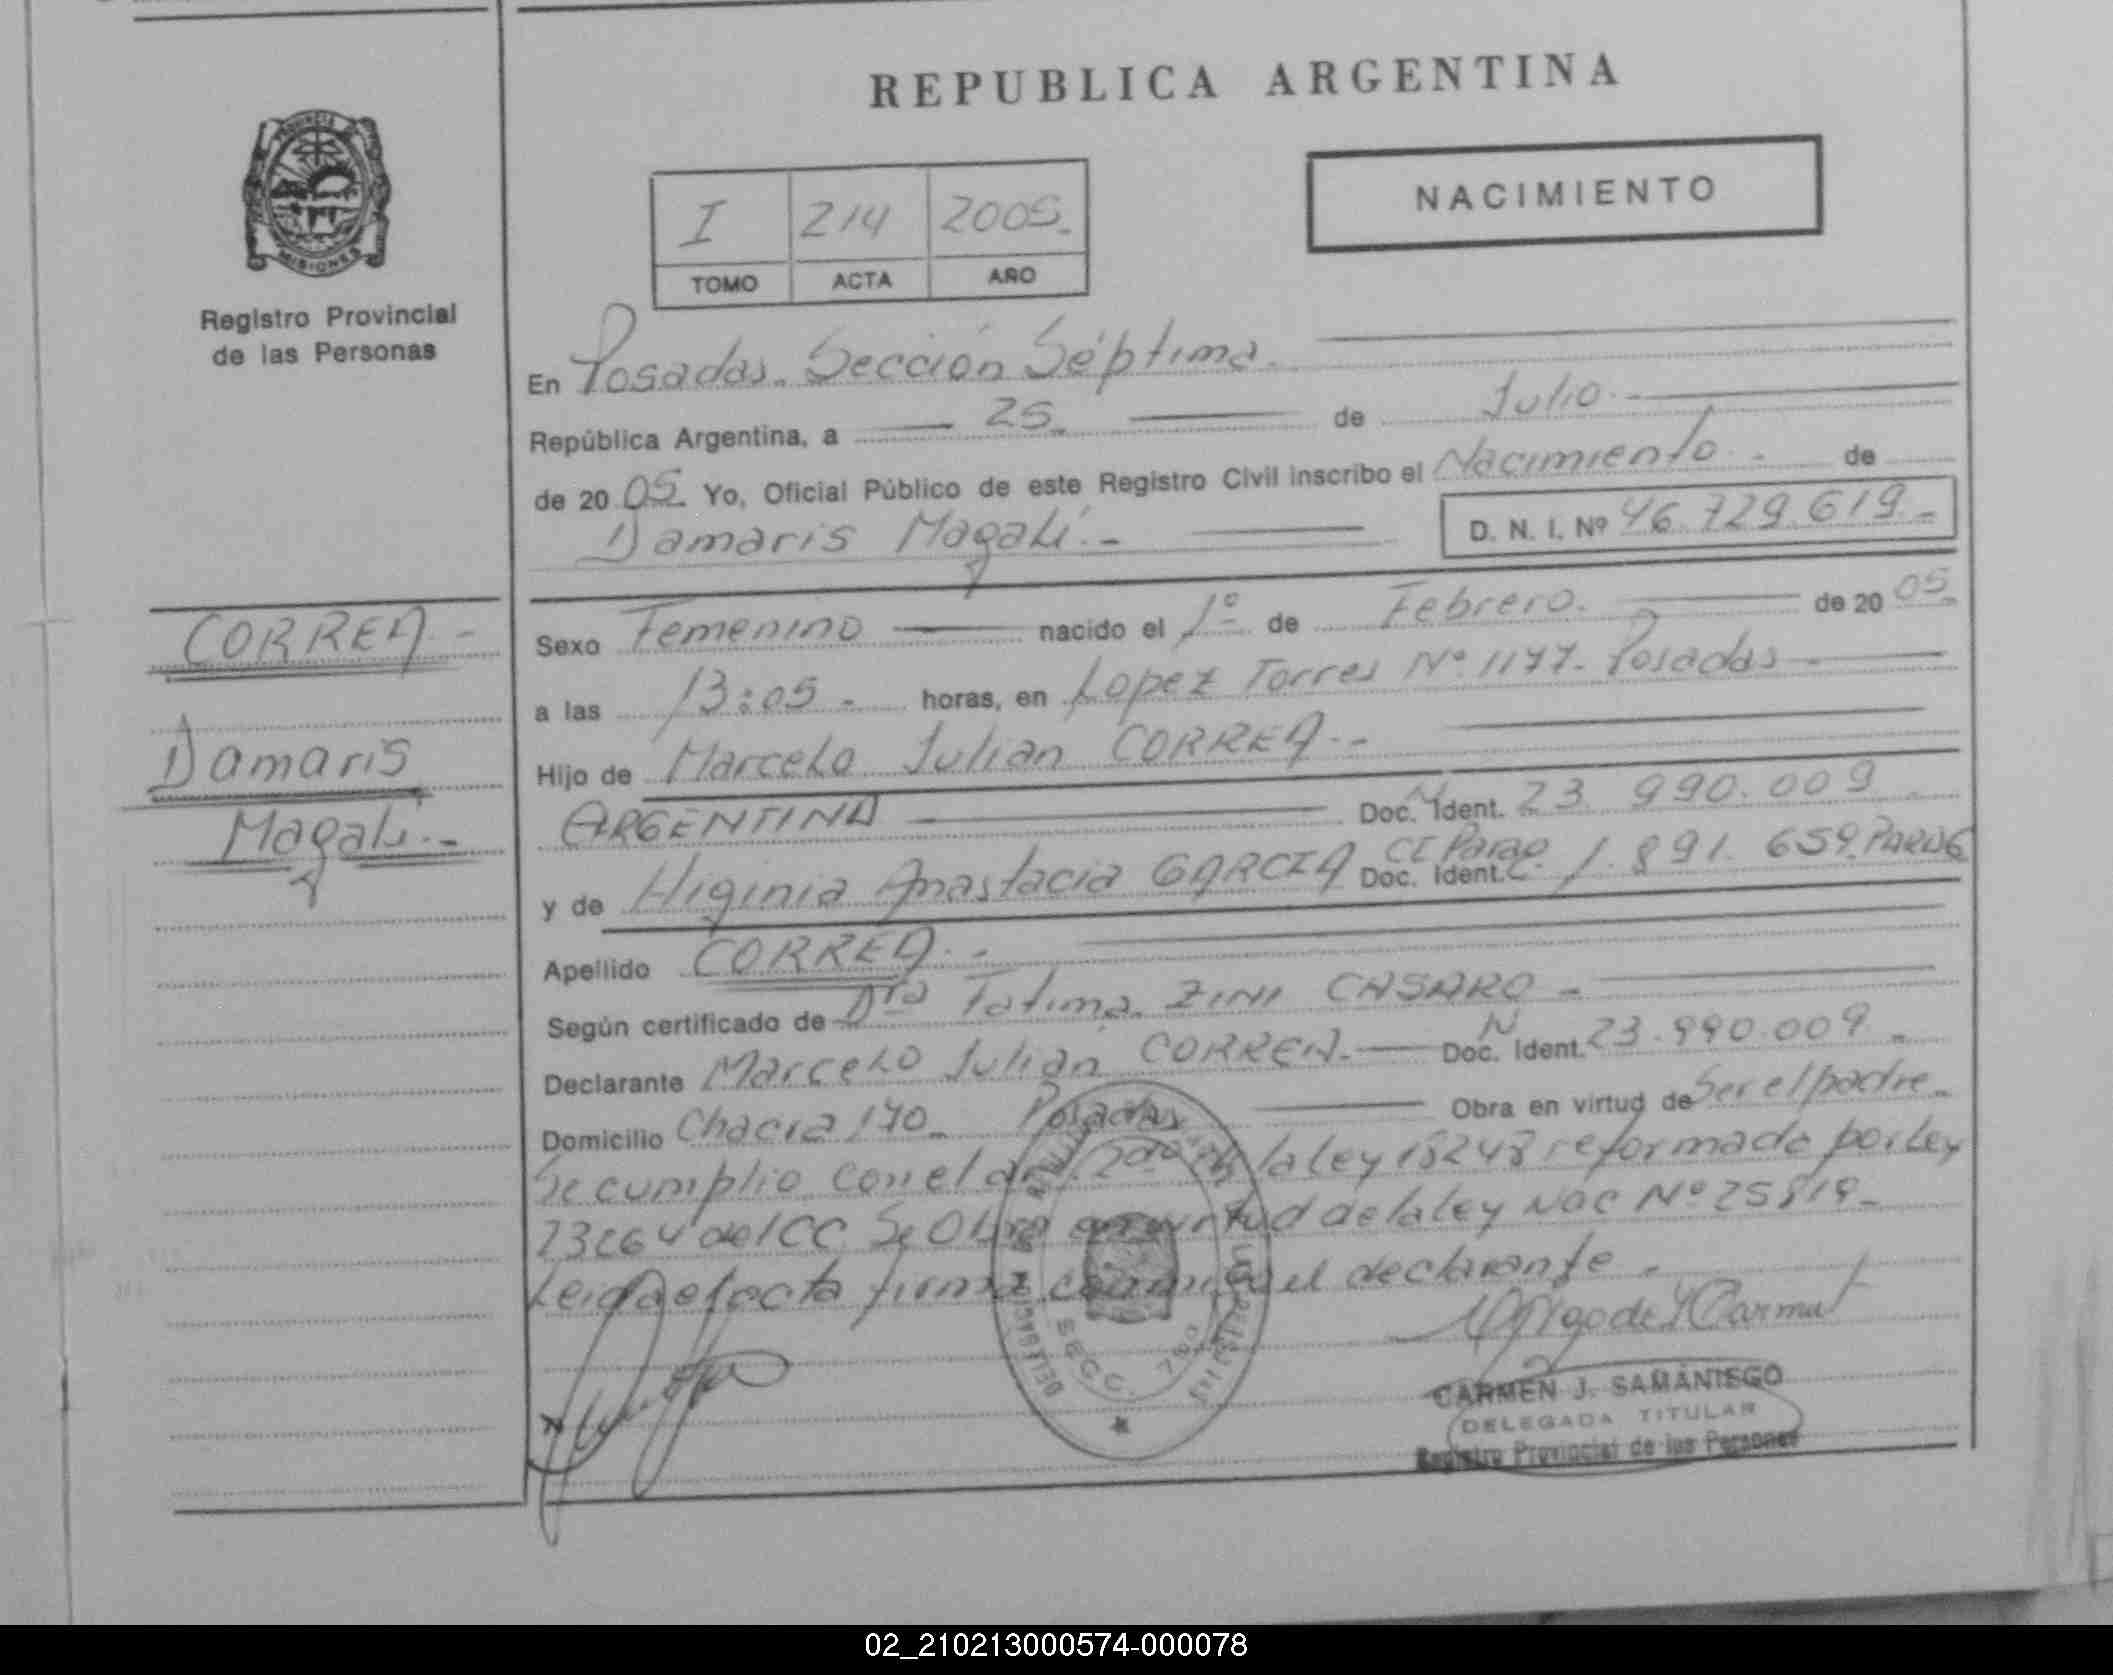 REPUBLICA ARGENTINA
NACIMIENTO
I 214 2005.
TOMO ACTA AÑO
PROVINCIA DE
MISIONES
Registro Provincial
de las Personas
CORREA.-
Damaris
Magalí.-
En Posadas. Sección Séptima.
República Argentina, a 25. de Julio.
de 20 05. Yo, Oficial Público de este Registro Civil inscribo el Nacimiento. de
Damaris Magalí.- D. N. I. Nº 46.729.619.-
Sexo Femenino nacido el 1º de Febrero. de 20 05.
a las 13:05.- horas, en Lopez Torres Nº 1177. Posadas
Hijo de Marcelo Julian CORREA.-
ARGENTINA Doc. N Ident. 23.990.009
y de Higinia Anastacia GARCIA Doc. Ident. CI Parag. 1.891.659. PARAG
Apellido CORREA.-
Según certificado de Dra Fatima ZINI CASARO-
Declarante Marcelo Julian CORREA.- Doc. N Ident. 23.990.009.-
Domicilio Chacra 170. Posadas Obra en virtud de Ser el padre.
Se cumplio con el art. 2do de la ley 18248 reformado por ley
23264 del CC. Se Obra en virtud de la ley Nac Nº 25819-
Leida el acta firma conmigo el declarante.-
SECC. 7ma
CARMEN J. SAMANIEGO
DELEGADA TITULAR
Registro Provincial de las Personas
02_210213000574-000078